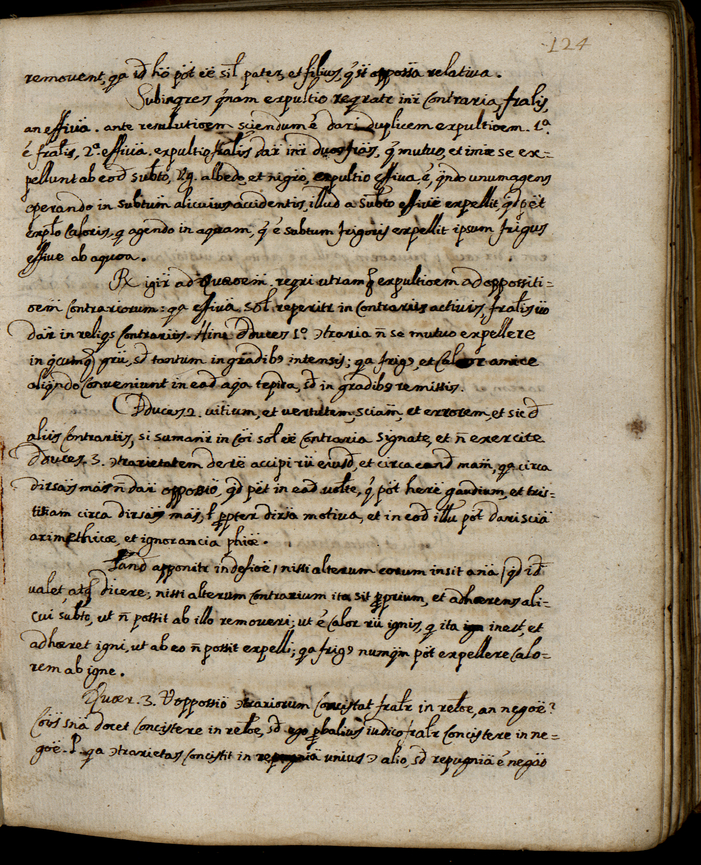 124
removent, qa id hõ põt eẽ sil pater, et filius, q̃ st opposĩa relativa.
Subinqres q̃nam expultio reqratr intr Contraria, fralis,
an effiva. ante resolutioem sciendum ẽ dari duplicem expultioem. 1ª.
ẽ fralis, 2ª effiva. expultio fralis datr intr duas fras, q̃ mutuo, et se ex=
pellunt ab eod subto, vg. albedo, et nigro, expultio effiva ẽ, qñdo unum agens
operando in subtum alicuius accidentis, illud a subto effive expellit, qd pẽt
explo Caloris, q agendo in aquam, q̃ ẽ subtum frigoris expellit ipsum frigus
effive ab aqua.
Rx igitr ad quaesem. reqri utramq expultioem ad oppositi=
oem Contrariorum: qa effiva sol. reperitr in Contrariis activis, fralis vo
datr in reliqs Contrariis. Hinc Dduces 1º. Ↄtraria ñ se mutuo expellere
in qcunq gru, sd tantum in gradibs intensis; qa frigs, et Calor amice
aliqñdo Conveniunt in ead aqa tepida, sd in gradibs remissis.
Dduces 2. vitium, et vertutem, sciam, et errorem, et sic d
aliis Contrariis, si sumantr in Coi sol eẽ Contraria signate, et ñ exercite
Dduces. 3. Ↄtrarietatem debe accipi rũ eiusd, et circa eand mam, qa circa
dirsas mas ñ datr oppossio, qd pẽt in ead volte, q̃ põt here gaudium, et tris=
titiam circa dirsas mas, l ppter dirsa motiva, et in eod illu põt dari scia
arimethicae, et ignorancia phiae.
Tand apponitr in desioe / nisi alterum eorum insit ana / qd id
valet, atq dicere; nisi alterum Contrarium ita sit pprium, et adhaerens ali=
cui subto, ut ñ possit ab illo removeri; ut ẽ Calor rũ ignis, q ita inest, et
adhaeret igni, ut ab eo ñ possit expelli; qa frigs numqm põt expellere Calo=
rem ab igne.
Quaer. 3. V oppossio Ↄtrariorum Concistat fralr in relõe, an negõe?
Cois snã docet Concistere in relõe, sd ego pbalius iudico fralr Concistere in ne=
gõe. P. qa Ↄtrarietas Concistit in repugniã unius Ↄ alio, sd repugniã ẽ negaõ